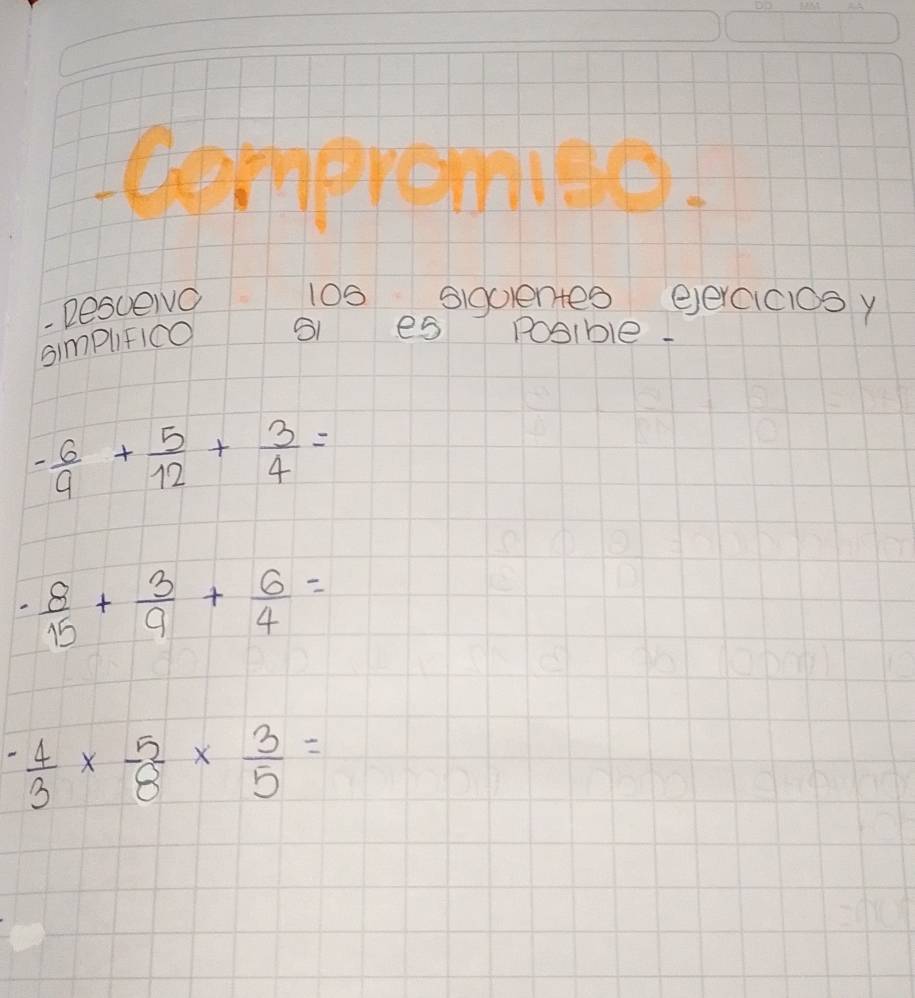 DD MM AA
-Compromiso.
-Resuelvo los siguientes ejercicios y
simplifico si es posible.
-6/9 + 5/12 + 3/4 =
-8/15 + 3/9 + 6/4 =
-4/3 x 5/8 x 3/5 =